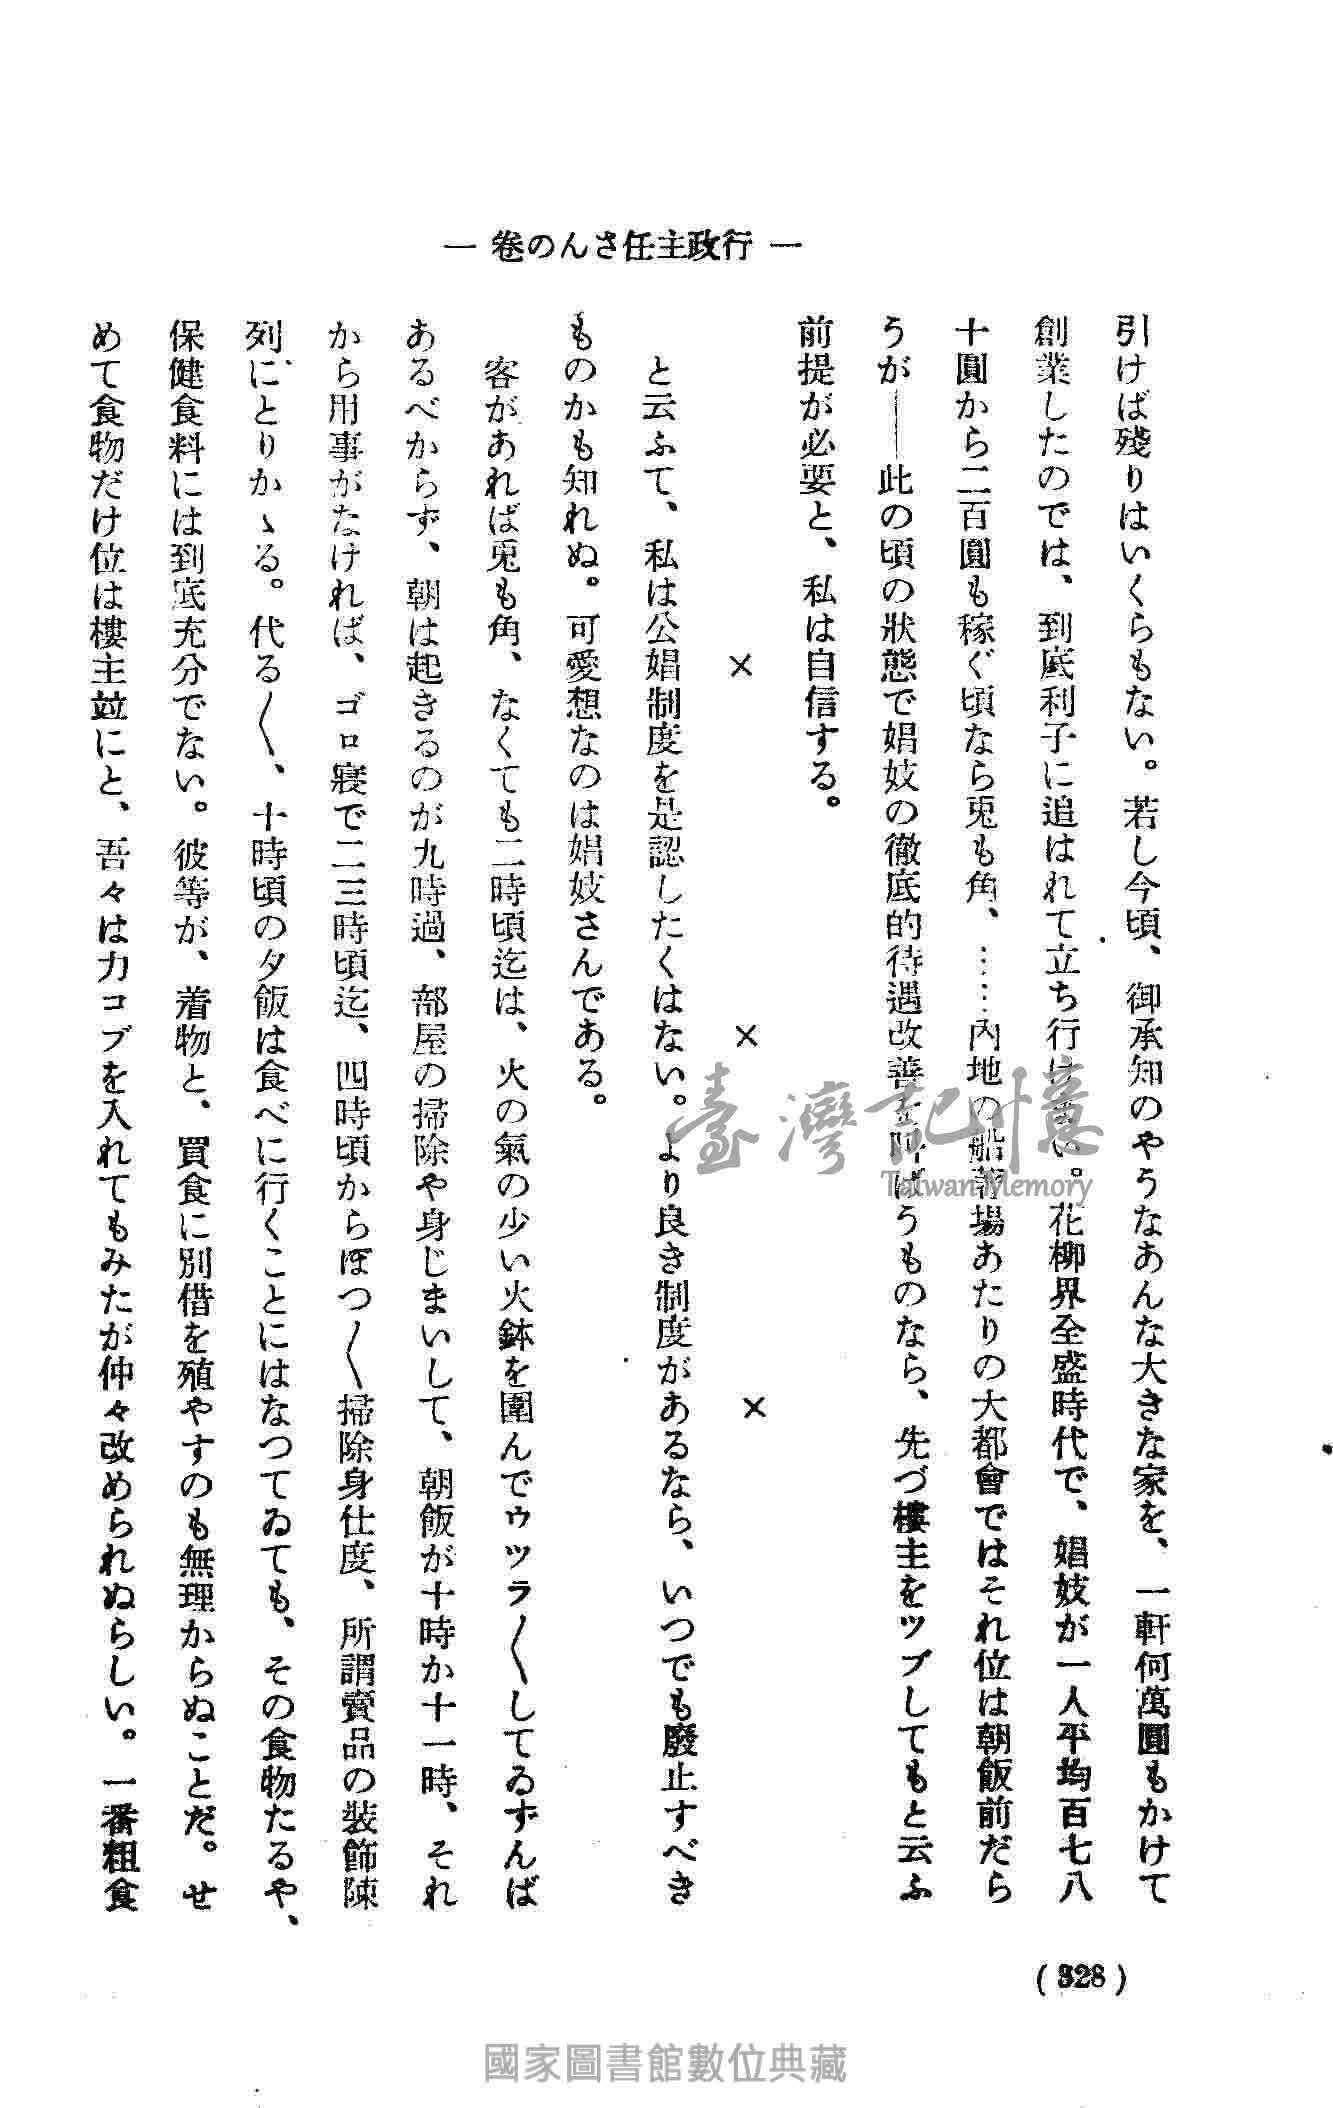 ― 行政主任さんの卷 ―
引けば殘りはいくらもない。若し今頃、御承知のやうなあんな大きな家を、一軒何萬圓もかけて
創業したのでは、到底利子に追はれて立ち行けない。花柳界全盛時代で、娼妓が一人平均百七八
十圓から二百圓も稼ぐ頃なら兎も角、……內地の船着場あたりの大都會ではそれ位は朝飯前だら
うが――此の頃の狀態で娼妓の徹底的待遇改善を叫ばうものなら、先づ樓主をツブしてもと云ふ
前提が必要と、私は自信する。
× × ×
と云ふて、私は公娼制度を是認したくはない。より良き制度があるなら、いつでも廢止すべき
ものかも知れぬ。可愛想なのは娼妓さんである。
客があれば兎も角、なくても二時頃迄は、火の氣の少い火鉢を圍んでウツラ〱してゐずんば
あるべからず、朝は起きるのが九時過、部屋の掃除や身じまいして、朝飯が十時か十一時、それ
から用事がなければ、ゴロ寢で二三時頃迄、四時頃からぼつ〱掃除身仕度、所謂賣品の裝飾陳
列にとりかゝる。代る〱、十時頃の夕飯は食べに行くことにはなつてゐても、その食物たるや、
保健食料には到底充分でない。彼等が、着物と、買食に別借を殖やすのも無理からぬことだ。せ
めて食物だけ位は樓主竝にと、吾々は力コブを入れてもみたが仲々改められぬらしい。一番粗食
(328)
臺灣記憶
Taiwan Memory
國家圖書館數位典藏